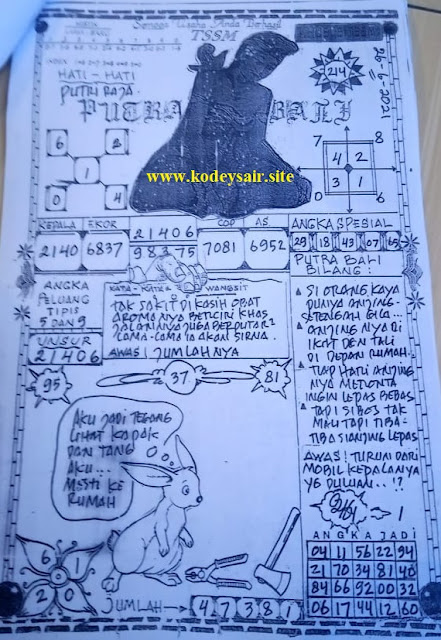 Semoga Usaha Anda Berhasil
TSSM
26-6-2021
214
HATI - HATI
PUTRI RAJA
PUTRA BALI
www.kodeysair.site
6
8
1
0
4
7
8
4 2
3 1
0
6
KEPALA EKOR
2140 6837
21406
98375
COP AS
7081 6952
ANGKA SPESIAL
29 18 43 07 65
PUTRA BALI
BILANG :
ANGKA
PELUANG
TIPIS
5 DAN 9
UNSUR
21406
KATA - KATA WANGSIT
TAK SAKIT DI KASIH OBAT
AROMANYA BERCIRI KHAS
JALANNYA JUGA BERPUTAR2
LAMA-LAMA IA AKAN SIRNA.
AWAS! JUMLAHNYA
SI ORANG KAYA
PUNYA ANJING-
SETENGAH GILA...
ANJING NYA DI
IKAT DEN TALI
DI DEPAN RUMAH..
TIAP HARI ANJING
NYA MERONTA
INGIN LEPAS BEBAS
TAPI SI BOS TAK
MAU TAPI TIBA-
TIBA SIANJING LEPAS
AWAS! TURUN DARI
MOBIL KEPALANYA
YG DULUAN..!?
95
37
81
AKU JADI TEGANG
LIHAT KAPAK
DAN TANG
AKU...
MESTI KE
RUMAH
6 1
2 0
JUMLAH
4 7 3 8 1
ANGKA JADI
04 11 56 22 94
21 70 34 81 40
84 66 92 00 32
06 17 44 12 60